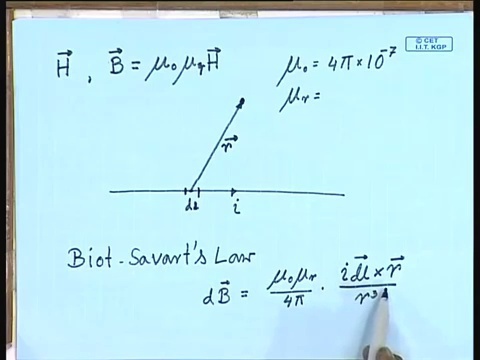 © CET
I.I.T. KGP
H⃗ , B⃗ = μ₀ μᵣ H⃗
μ₀ = 4π × 10⁻⁷
μᵣ =
r⃗
dl i
Biot-Savart's Law
dB⃗ = μ₀μᵣ/4π · i dl⃗ × r⃗ / r³